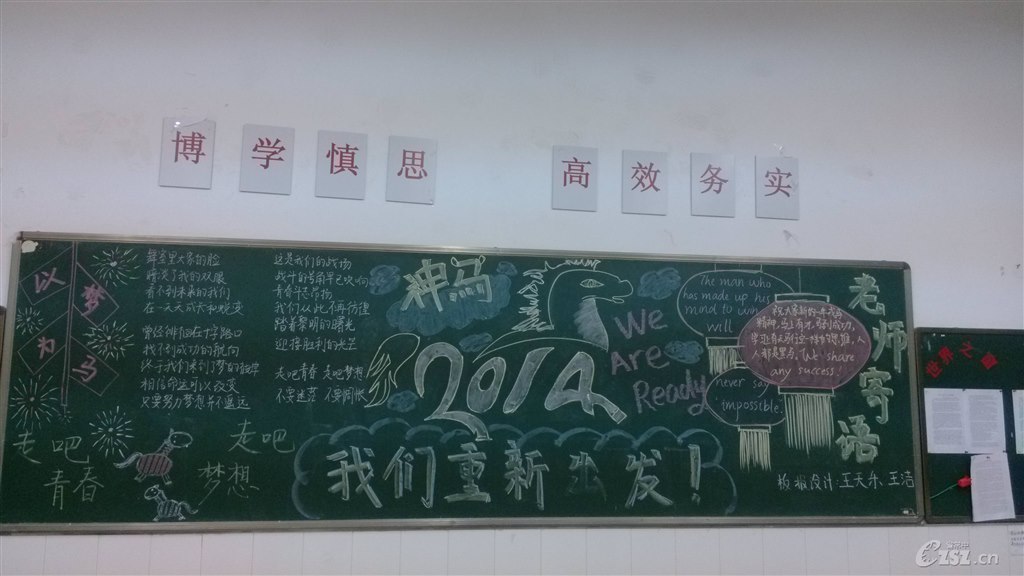 博学慎思
高效务实
以梦为马
舞台里大家的脸
看不到未来的我们
在一天天成长中蜕变
曾经徘徊在十字路口
找不到成功的航向
终于我们来到了梦的起点
相信命运可以改变
只要努力梦想并不遥远
这是我们的战场
战斗的号角早已吹响
我们从此不再彷徨
踏着黎明的曙光
迎接胜利的光芒
走吧青春 走吧梦想
不要迷茫 不要惆怅
走吧
青春
走吧
梦想
神马
2014
We
Are
Ready
我们重新出发!
The man who
has made up his
mind to win
will
never say
impossible.
人都是黑点, We share
any success!
老师寄语
板报设计:王天乐、王洁
世界之窗
CZSZ.cn